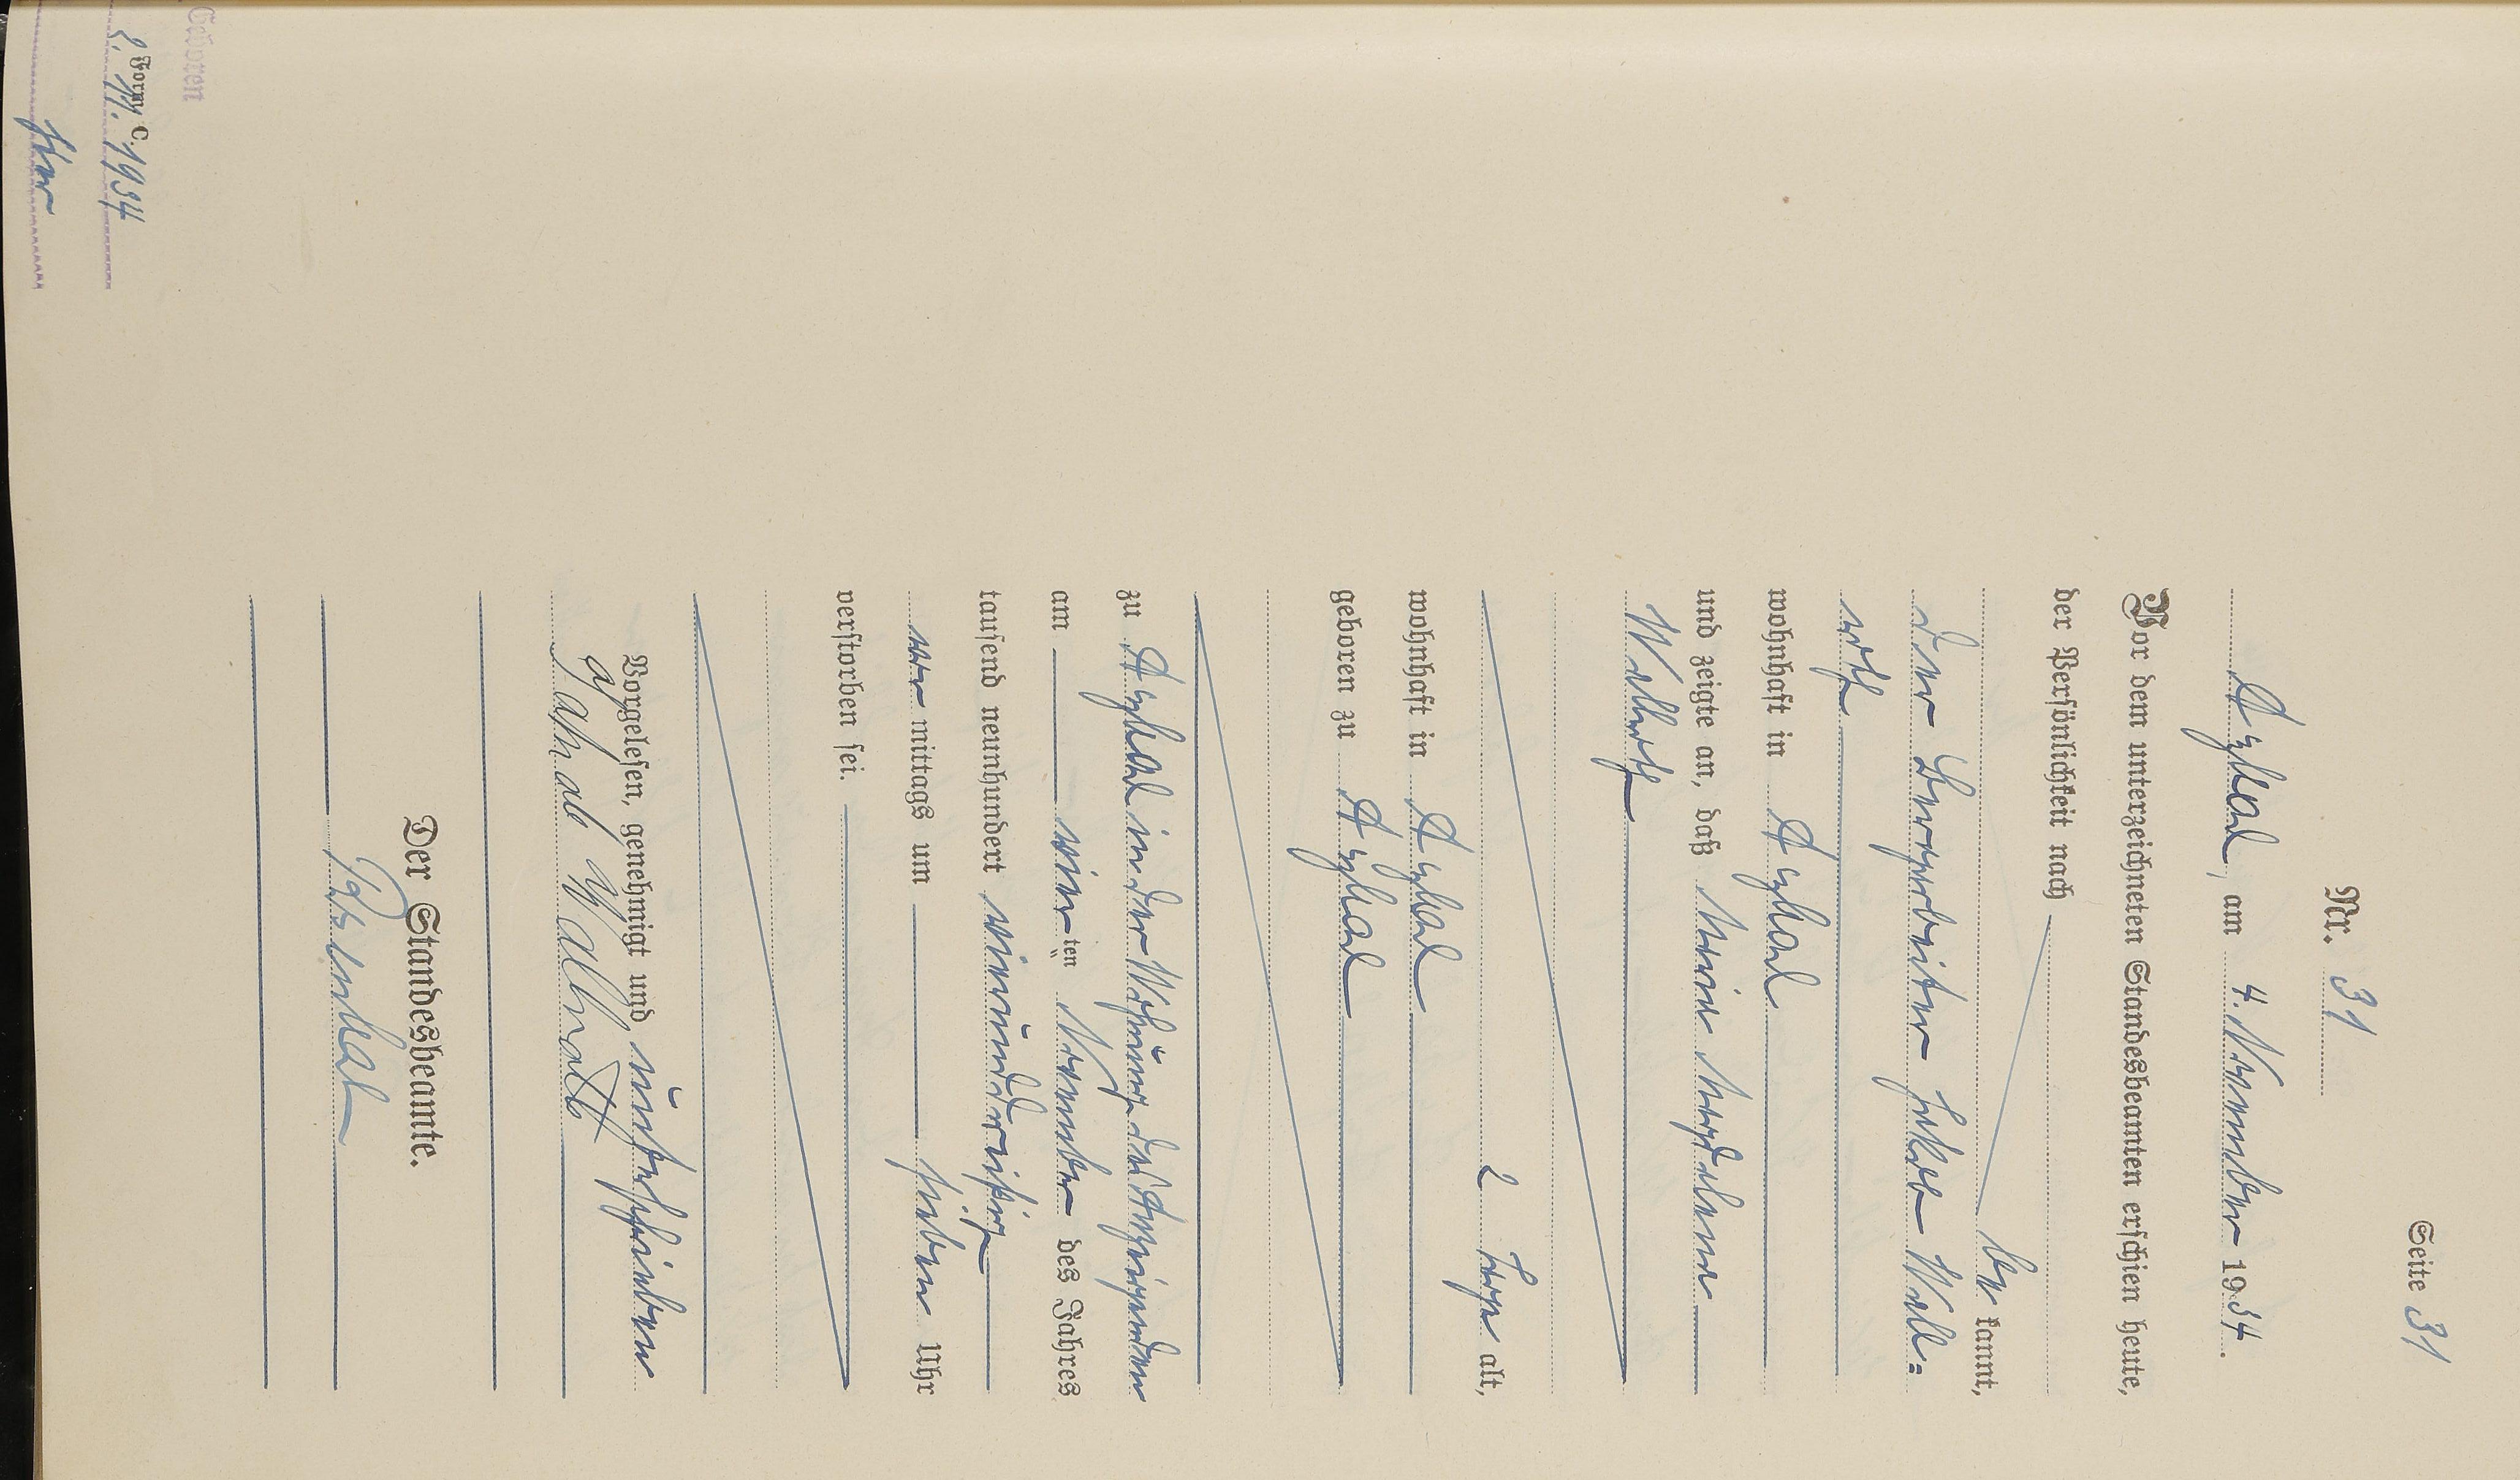 Seite 31
Nr. 31
Asslar, am 4. November 1934.
Vor dem unterzeichneten Standesbeamten erschien heute,
der Persönlichkeit nach
be kannt,
der Bergarbeiter Jakob Wall-
roth
wohnhaft in Asslar
und zeigte an, daß Maria Magdalena
Wallroth
2 Tage alt,
wohnhaft in Asslar
geboren zu Asslar
zu Asslar in der Wohnung des Anzeigenden
am vierten November des Jahres
tausend neunhundert vierunddreißig
vor mittags um sieben Uhr
verstorben sei.
Vorgelesen, genehmigt und unterschrieben
Jakob Wallroth
Der Standesbeamte.
Geboren
2. 11. 1934
Form C.